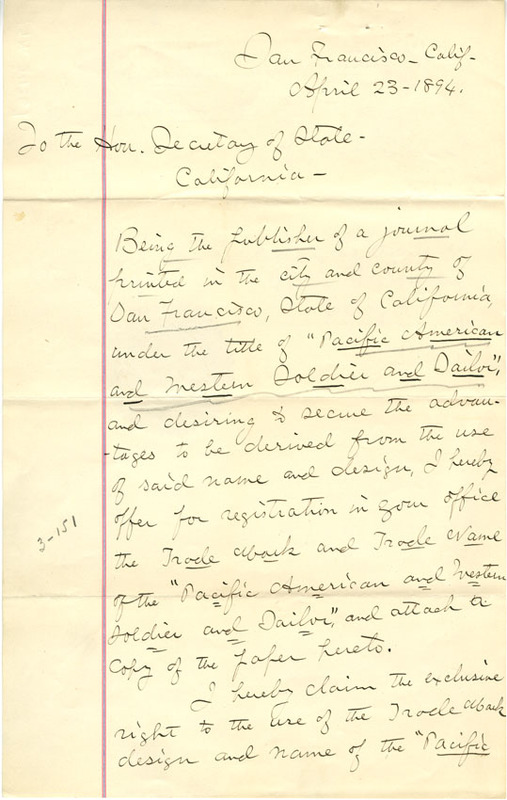 San Francisco - Calif -
April 23 - 1894.
To the Hon. Secretay of State -
California -
Being the publisher of a journal
printed in the city and county of
San Francisco, State of California,
under the title of "Pacific American
and Western Soldier and Sailor",
and desiring to secure the advan-
-tages to be derived from the use
of said name and design, I hereby
offer for registration in your office
the Trade Mark and Trade Name
of the "Pacific American and Western
Soldier and Sailor", and attach a
copy of the paper hereto.
I hereby claim the exclusive
right to the use of the Trade Mark
design and name of the "Pacific
3-151